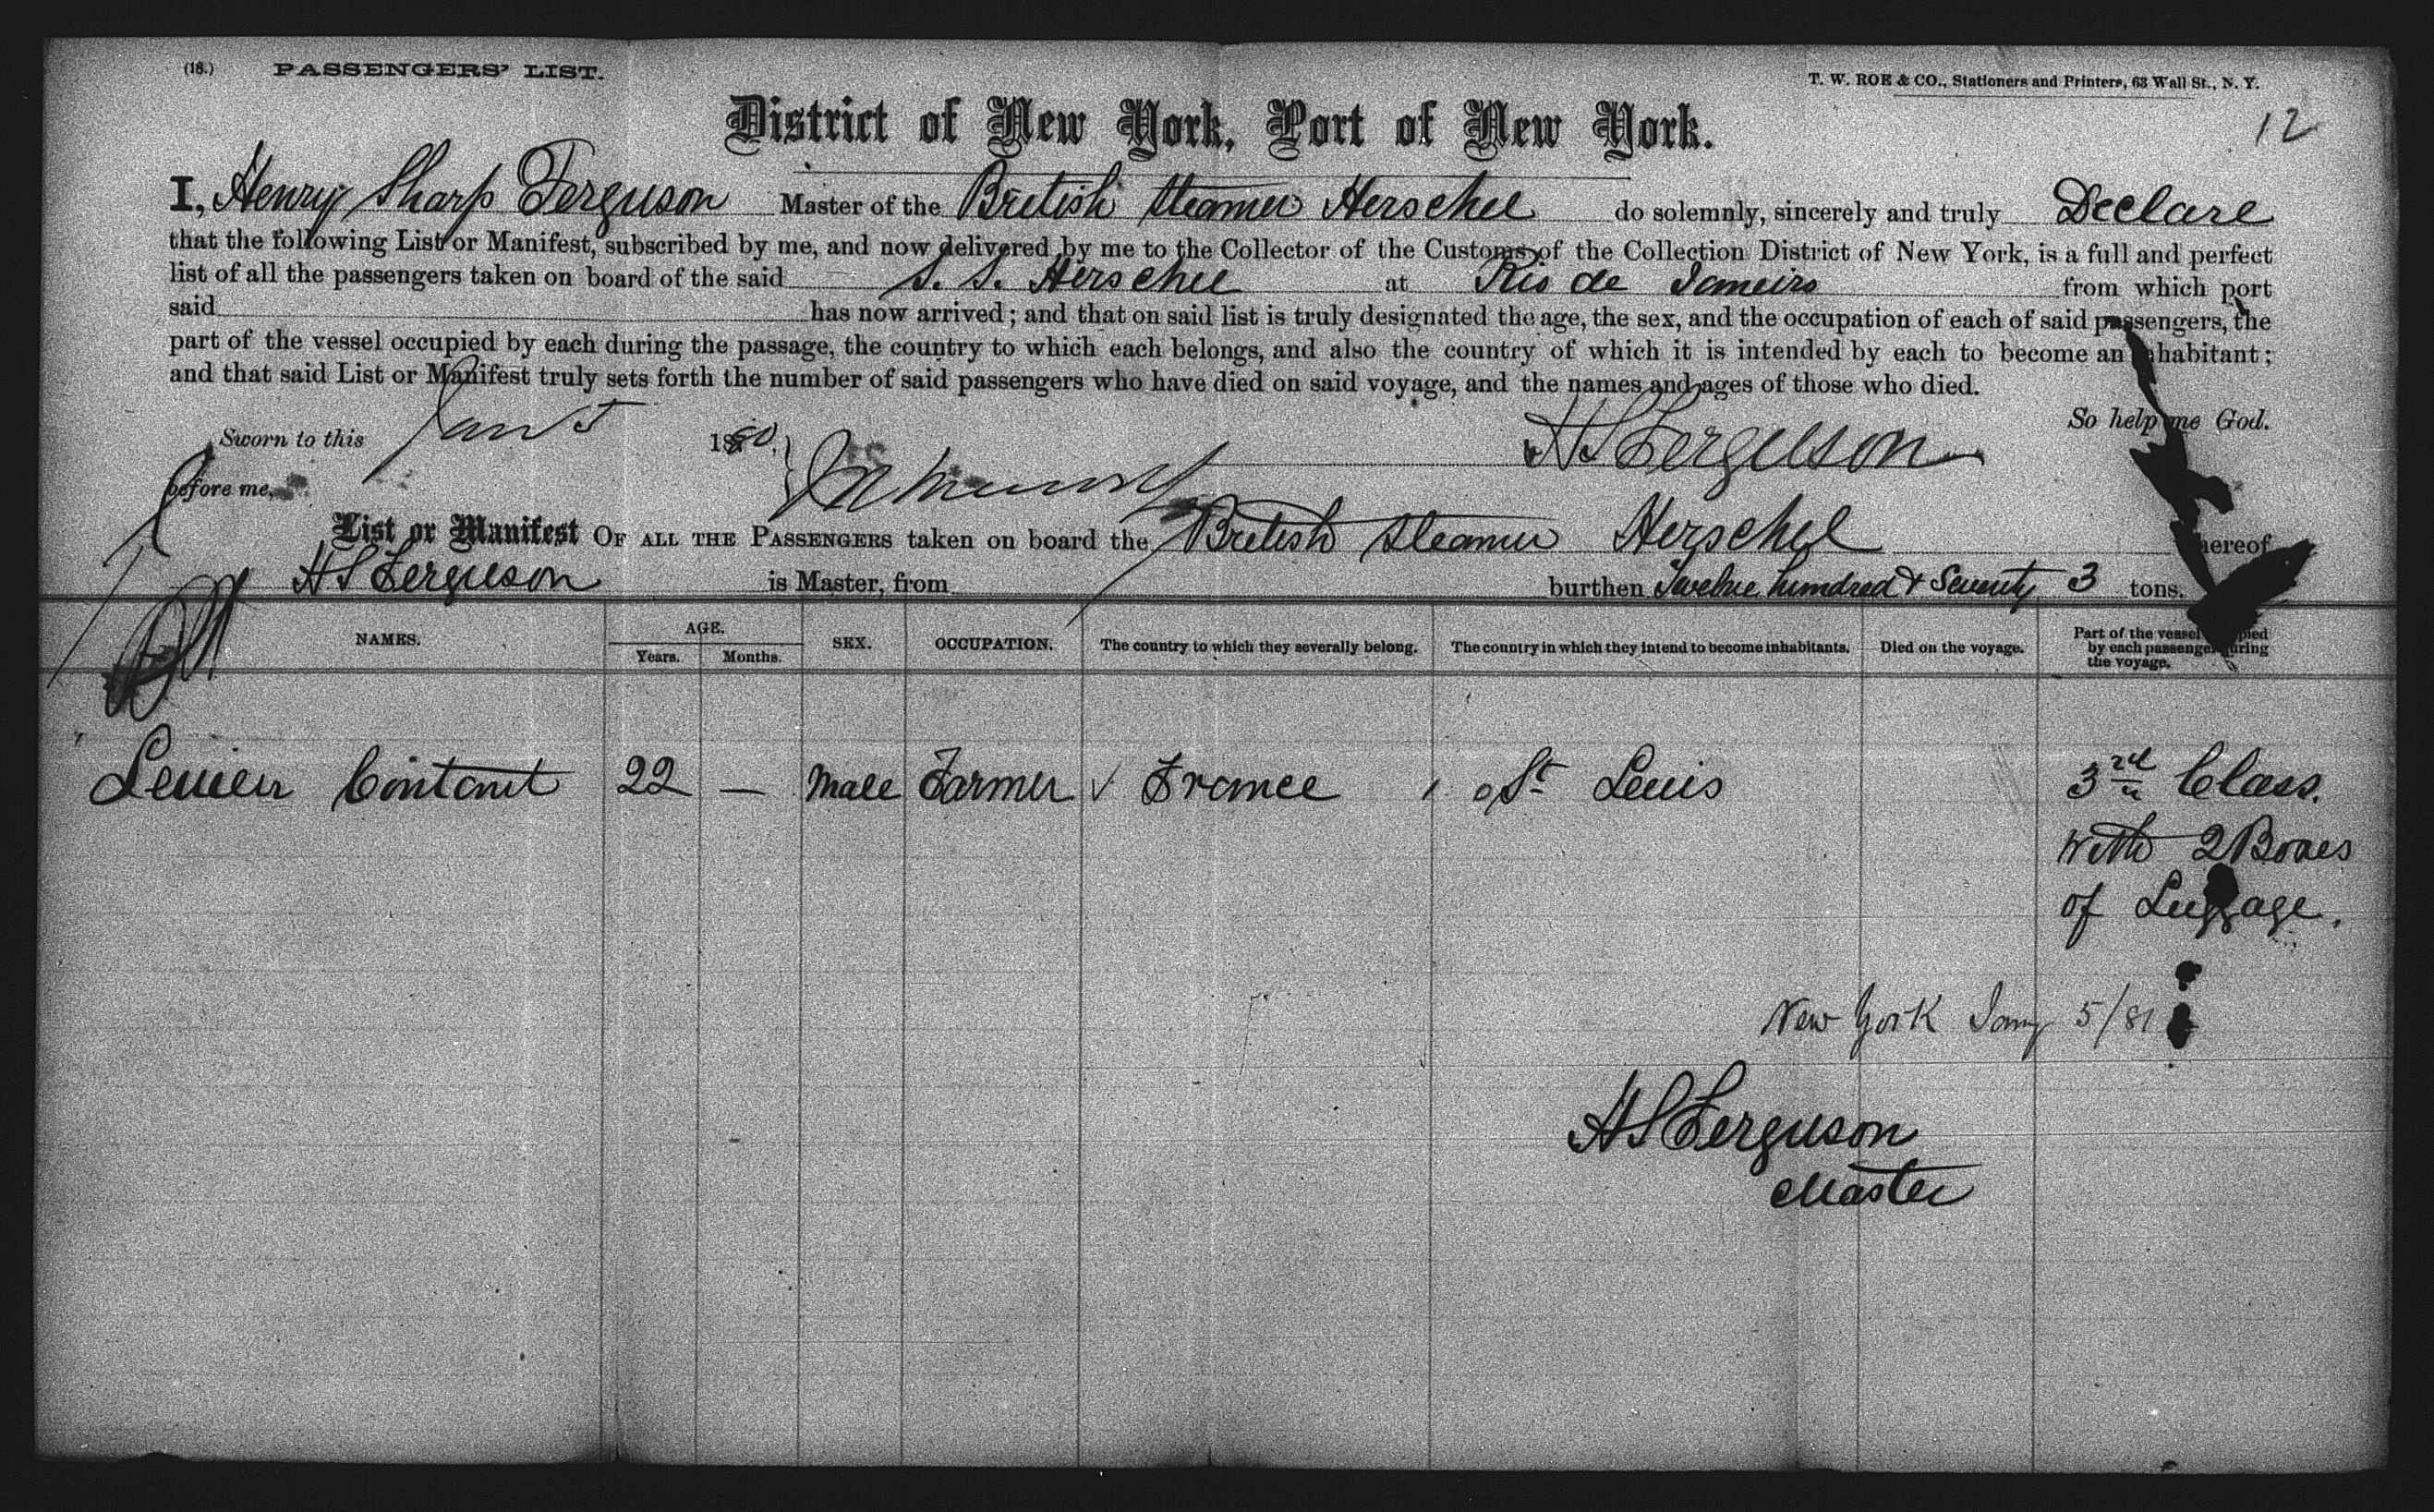 (18.) PASSENGERS' LIST.
T. W. ROE & CO., Stationers and Printers, 63 Wall St., N. Y.
12
District of New York, Port of New York.
I, Henry Sharp Ferguson Master of the British Steamer Herschel do solemnly, sincerely and truly Declare
that the following List or Manifest, subscribed by me, and now delivered by me to the Collector of the Customs of the Collection District of New York, is a full and perfect
list of all the passengers taken on board of the said S. S. Herschel at Rio de Janeiro from which port
said has now arrived; and that on said list is truly designated the age, the sex, and the occupation of each of said passengers, the
part of the vessel occupied by each during the passage, the country to which each belongs, and also the country of which it is intended by each to become an inhabitant;
and that said List or Manifest truly sets forth the number of said passengers who have died on said voyage, and the names and ages of those who died.
So help me God.
Sworn to this Jany 5 1880. H S Ferguson
before me,
List or Manifest OF ALL THE PASSENGERS taken on board the British Steamer Herschel whereof
H S Ferguson is Master, from burthen Twelve hundred & Seventy 3 tons.
NAMES. AGE. Years. Months. SEX. OCCUPATION. The country to which they severally belong. The country in which they intend to become inhabitants. Died on the voyage. Part of the vessel occupied by each passenger during the voyage.
Contant 22 — Male Farmer France St Louis 3rd Class.
with 2 Boxes
of Luggage.
New York Jany 5/81
H S Ferguson
Master